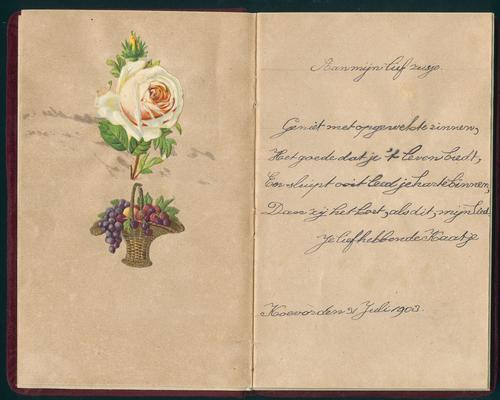 Aan mijn lief zusje.
Geniet met opgewekte zinnen,
Het goede dat je 't leven biedt,
En sluipt ooit leed je harte binnen,
Dan zij het kort, als dit, mijn lied.
Je liefhebbende Kaatje
Koevorden 2 Juli 1903.